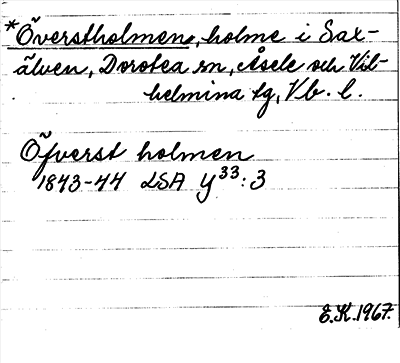 *Överstholmen, holme i Sax-
älven, Dorotea sn, Åsele och Vil-
helmina tg, Vb. l.
Öfverst holmen
1843-44 LSA Y33:3
E.K.1967.